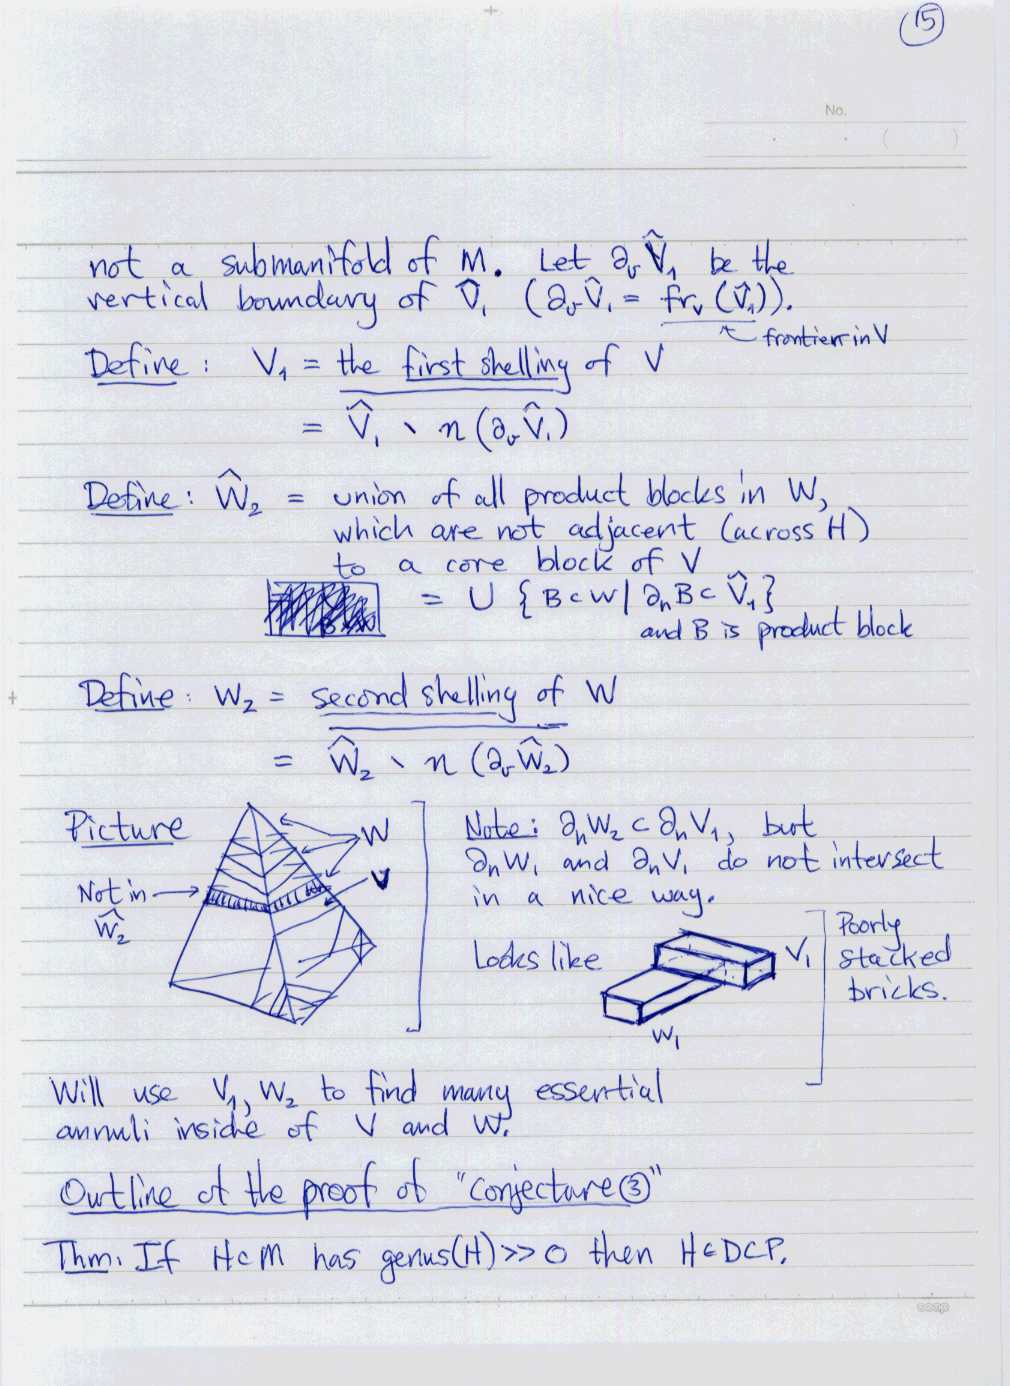 15
No.
not a submanifold of M. Let ∂ᵥV̂₁ be the
vertical boundary of V̂₁ (∂ᵥV̂₁ = frᵥ(V̂₁)).
frontier in V
Define: V₁ = the first shelling of V
= V̂₁ \ n(∂ᵥV̂₁)
Define: Ŵ₂ = union of all product blocks in W,
which are not adjacent (across H)
to a core block of V
= ∪ {B⊂W | ∂ₕB⊂V̂₁}
and B is product block
Define: W₂ = second shelling of W
= Ŵ₂ \ n(∂ᵥŴ₂)
Picture
W
V
Not in
Ŵ₂
Note: ∂ₕW₂ ⊂ ∂ₕV₁, but
∂ₕW₁ and ∂ₕV₁ do not intersect
in a nice way.
Looks like
V₁
W₁
Poorly
stacked
bricks.
Will use V₁, W₂ to find many essential
annuli inside of V and W.
Outline of the proof of "Conjecture ③"
Thm. If H⊂M has genus(H) >> 0 then H∈DCP.